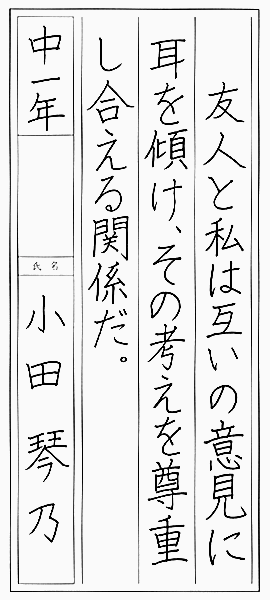 友人と私は互いの意見に
耳を傾け、その考えを尊重
し合える関係だ。
中一年
氏名
小田琴乃